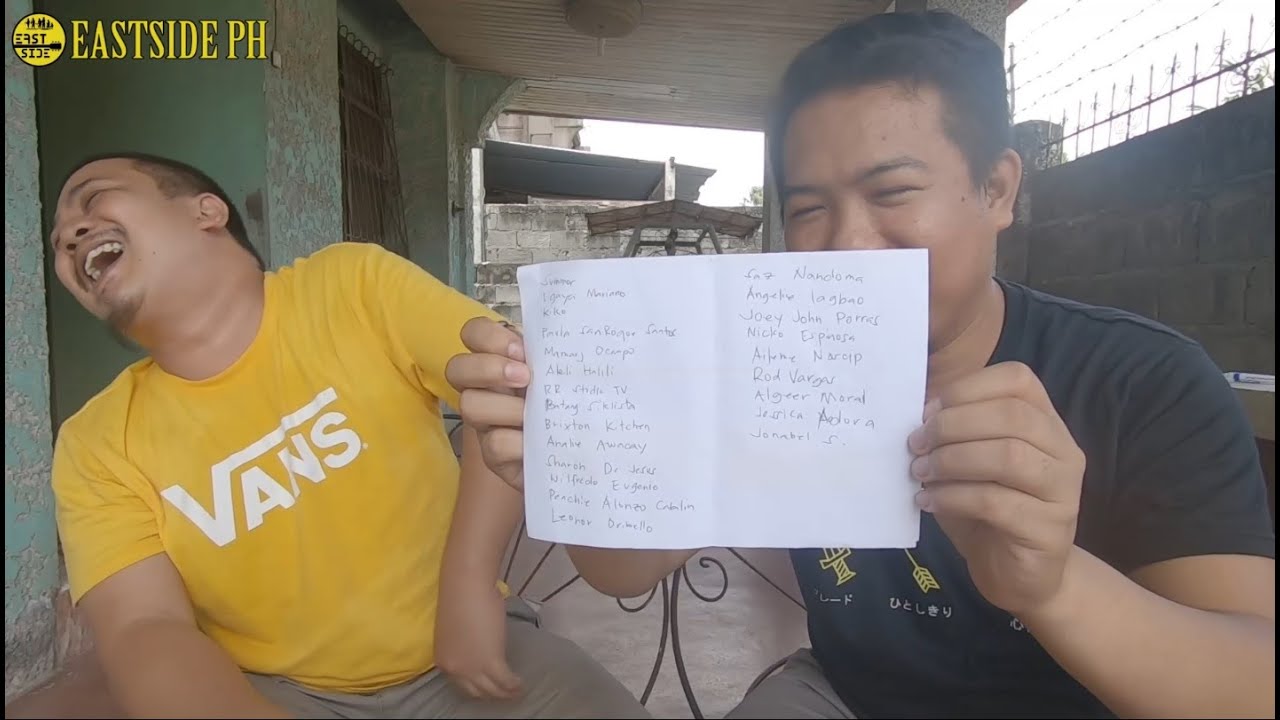 EAST
SIDE
EASTSIDE PH
VANS
Summer
ligaya Mariano
Kiko
Paula SanRoque Santos
Manang Ocampo
Abeli Halili
RR Studio TV
Batang Siklista
Brixton Kitchen
Analie Awnoay
Sharon De Jesus
Wilfredo Eugenio
Peachie Alonzo Cabalin
Leonor
Saz Nandoma
Angelie lagbao
Joey John Porras
Nicko Espinosa
Ailene Narcip
Rod Vargas
Algeer Moral
Jessica Adora
Jonabel S.
レード
ひとしきり
心